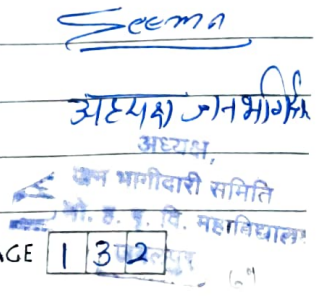 Seema
अध्यक्ष जनभागीदारी
अध्यक्ष,
जन भागीदारी समिति
मो. ह. गृ. वि. महाविद्यालय
जबलपुर
AGE 1 3 2